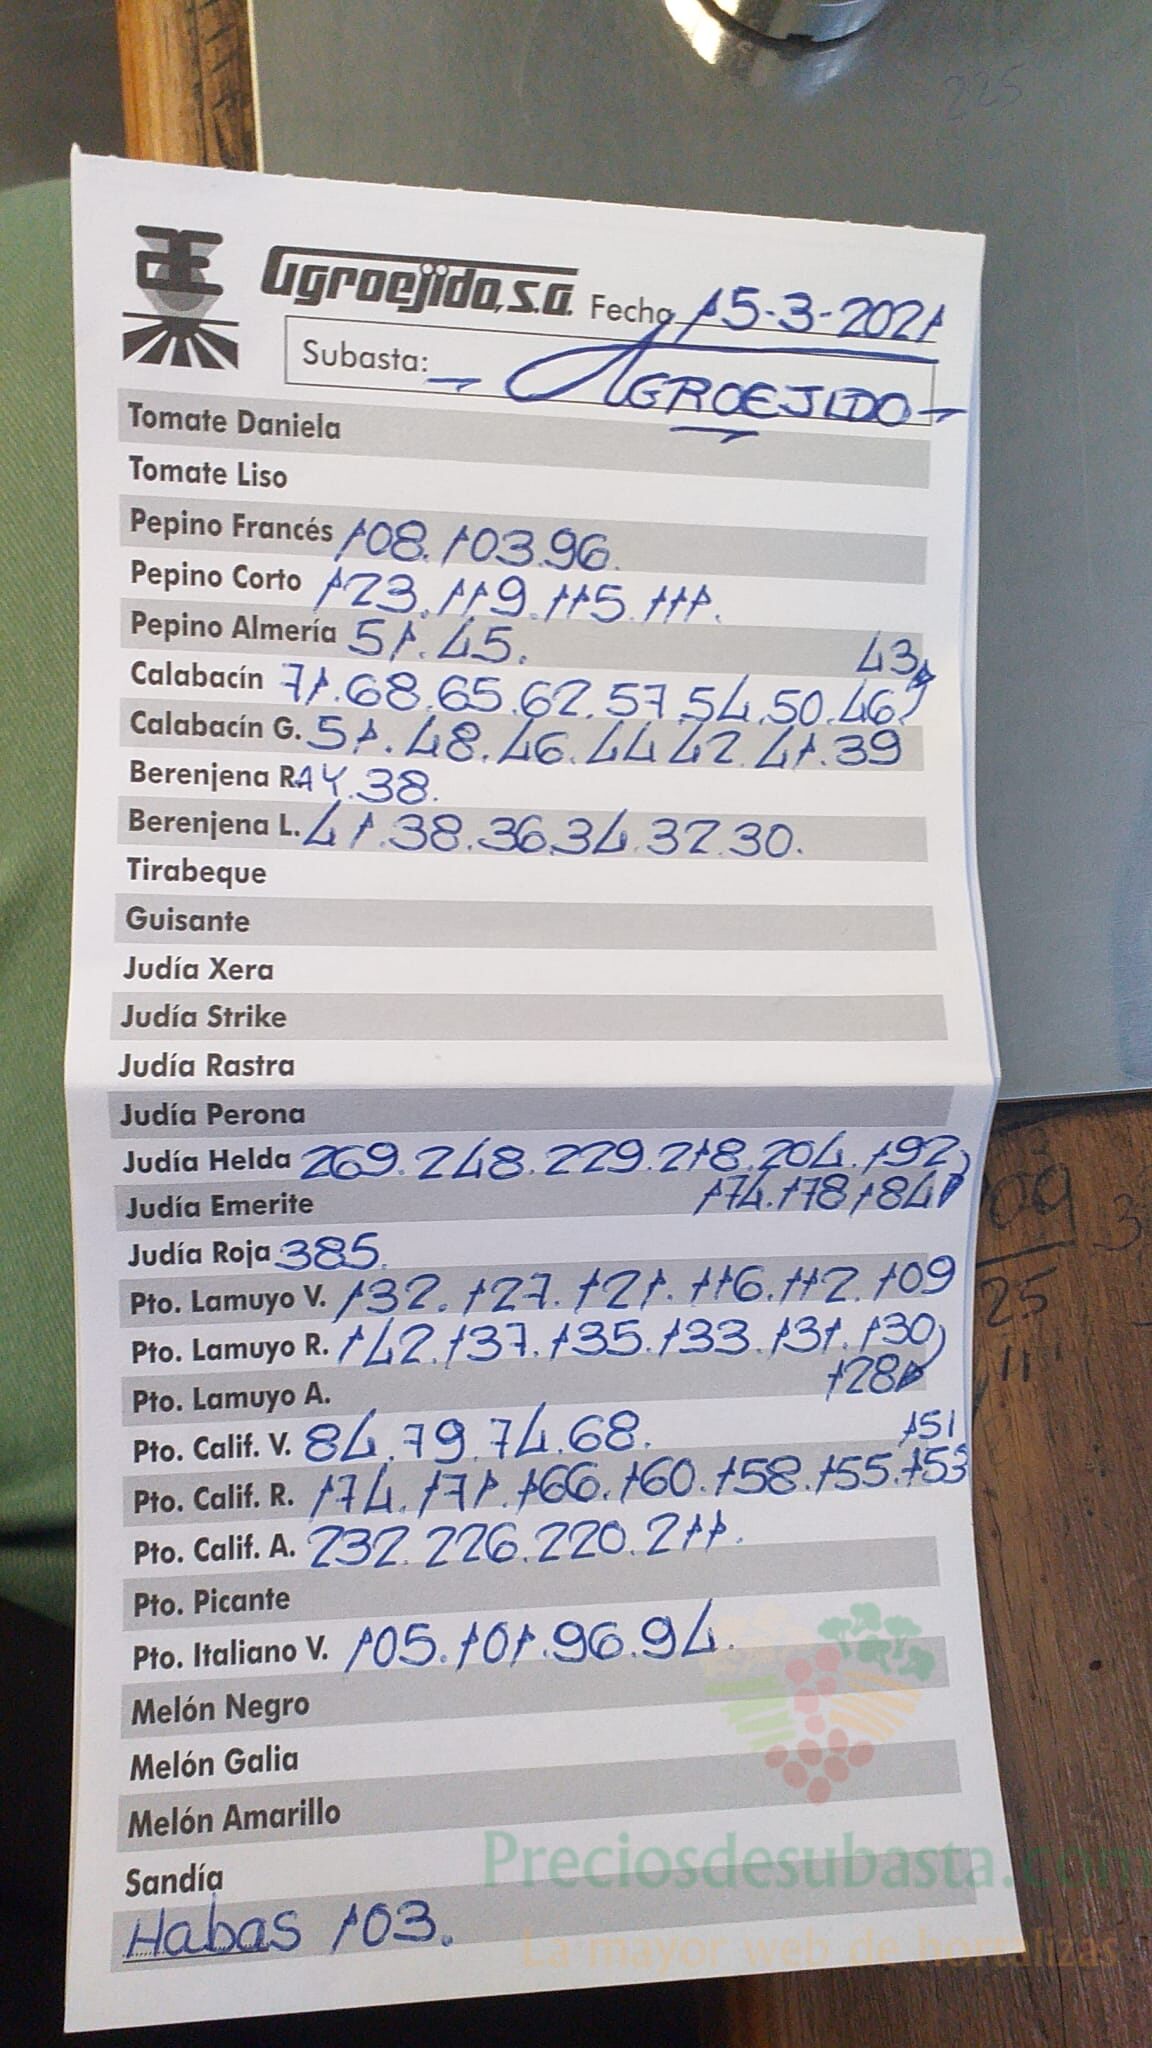 225
Agroejido, S.A. Fecha 15-3-2021
Subasta: AGROEJIDO
Tomate Daniela
Tomate Liso
Pepino Francés 108. 103. 96.
Pepino Corto 123. 119. 115. 111.
Pepino Almería 51. 45.
43
Calabacín 71. 68. 65. 62. 57. 54. 50. 46
Calabacín G. 51. 48. 46. 44 42. 41. 39
Berenjena RAY. 38.
Berenjena L. 41. 38. 36. 34. 32. 30.
Tirabeque
Guisante
Judía Xera
Judía Strike
Judía Rastra
Judía Perona
Judía Helda 269. 248. 229. 218. 204. 192
174. 178 184
Judía Emerite
Judía Roja 385.
Pto. Lamuyo V. 132. 127. 121. 116. 112. 109
Pto. Lamuyo R. 142. 137. 135. 133. 131. 130
128
Pto. Lamuyo A.
Pto. Calif. V. 84. 79. 74. 68.
151
Pto. Calif. R. 174. 171. 166. 160. 158. 155. 153
Pto. Calif. A. 232. 226. 220. 211.
Pto. Picante
Pto. Italiano V. 105. 101. 96. 94.
Melón Negro
Melón Galia
Melón Amarillo
Sandía
Habas 103.
Preciosdesubasta.com
La mayor web de hortalizas
25